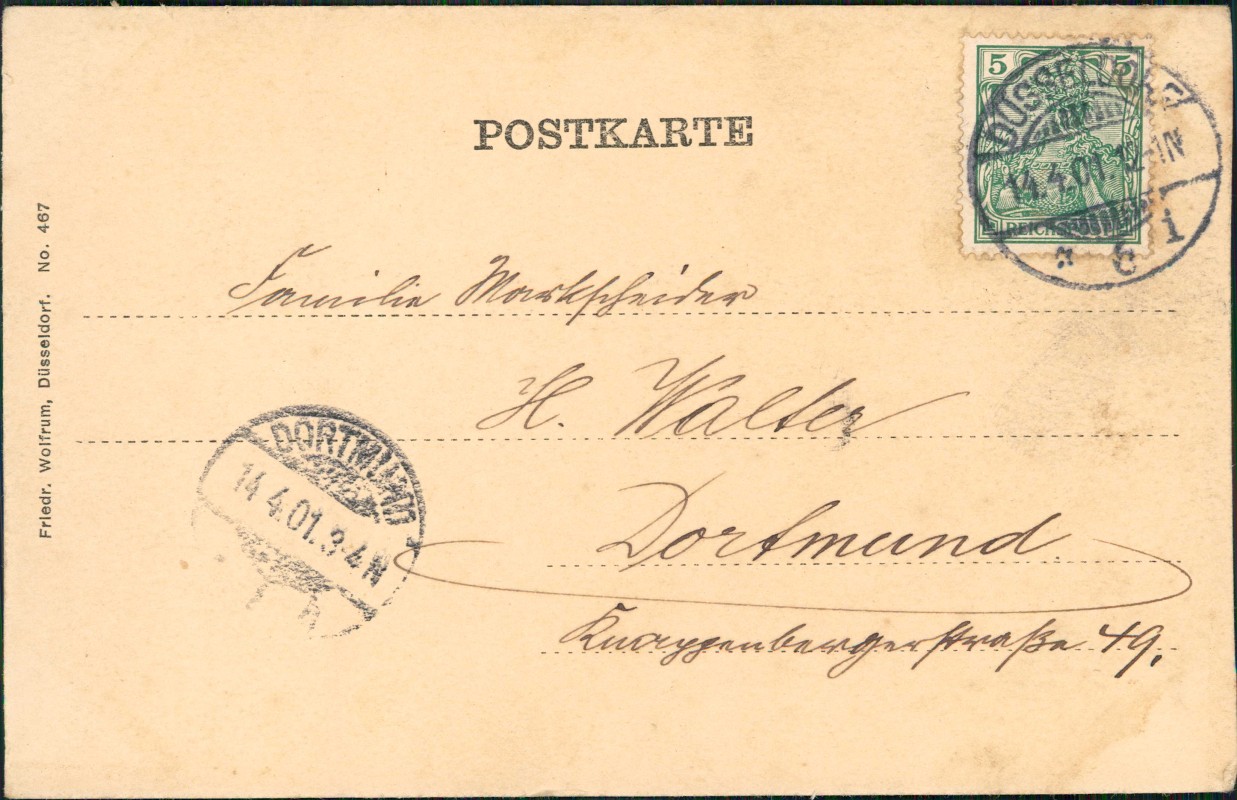 POSTKARTE
5 5
REICHSPOST
DÜSSELDORF
14.4.01.12-1N
* 6 i
Familie Markscheider
H. Walter
Dortmund.
Knappenbergerstraße 49.
DORTMUND
14.4.01.3-4N
Friedr. Wolfrum, Düsseldorf. No. 467